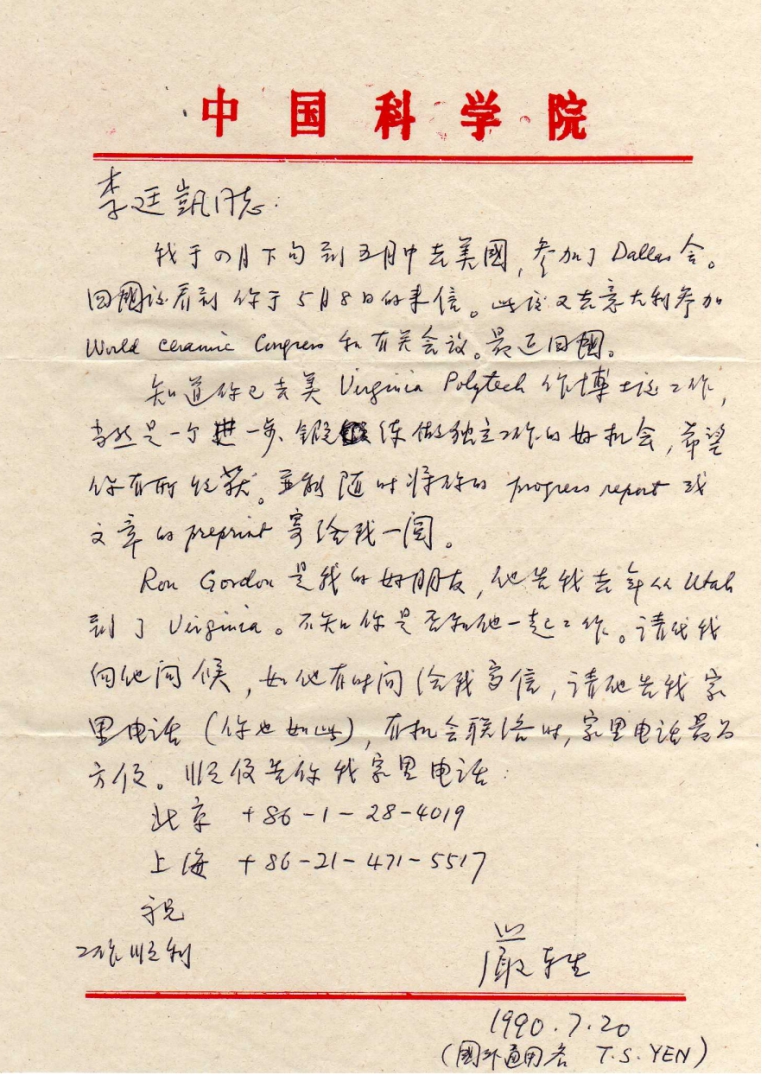 中国科学院
李廷凯同志：
我于四月下旬到五月中去美國，参加了Dallas会。
回國后看到你于5月8日的来信。此后又去意大利参加
World Ceramic Congress和有关会议。最近回國。
知道你已去美Virginia Polytech作博士后工作，
当然是一个进一步锻练做独立工作的好机会，希望
你有所收获。并能随时将你的progress report或
文章的preprint寄给我一阅。
Ron Gordon是我的好朋友，他告我去年从Utah
到了Virginia。不知你是否和他一起工作。请代我
向他问候，如他有时间给我写信，请他告我家
里电话（你也如此），有机会联络时，家里电话最为
方便。顺便告你我家里电话：
北京 +86-1-28-4019
上海 +86-21-471-5517
祝
工作顺利
嚴东生
1990.7.20
(國外通用名 T.S.YEN)